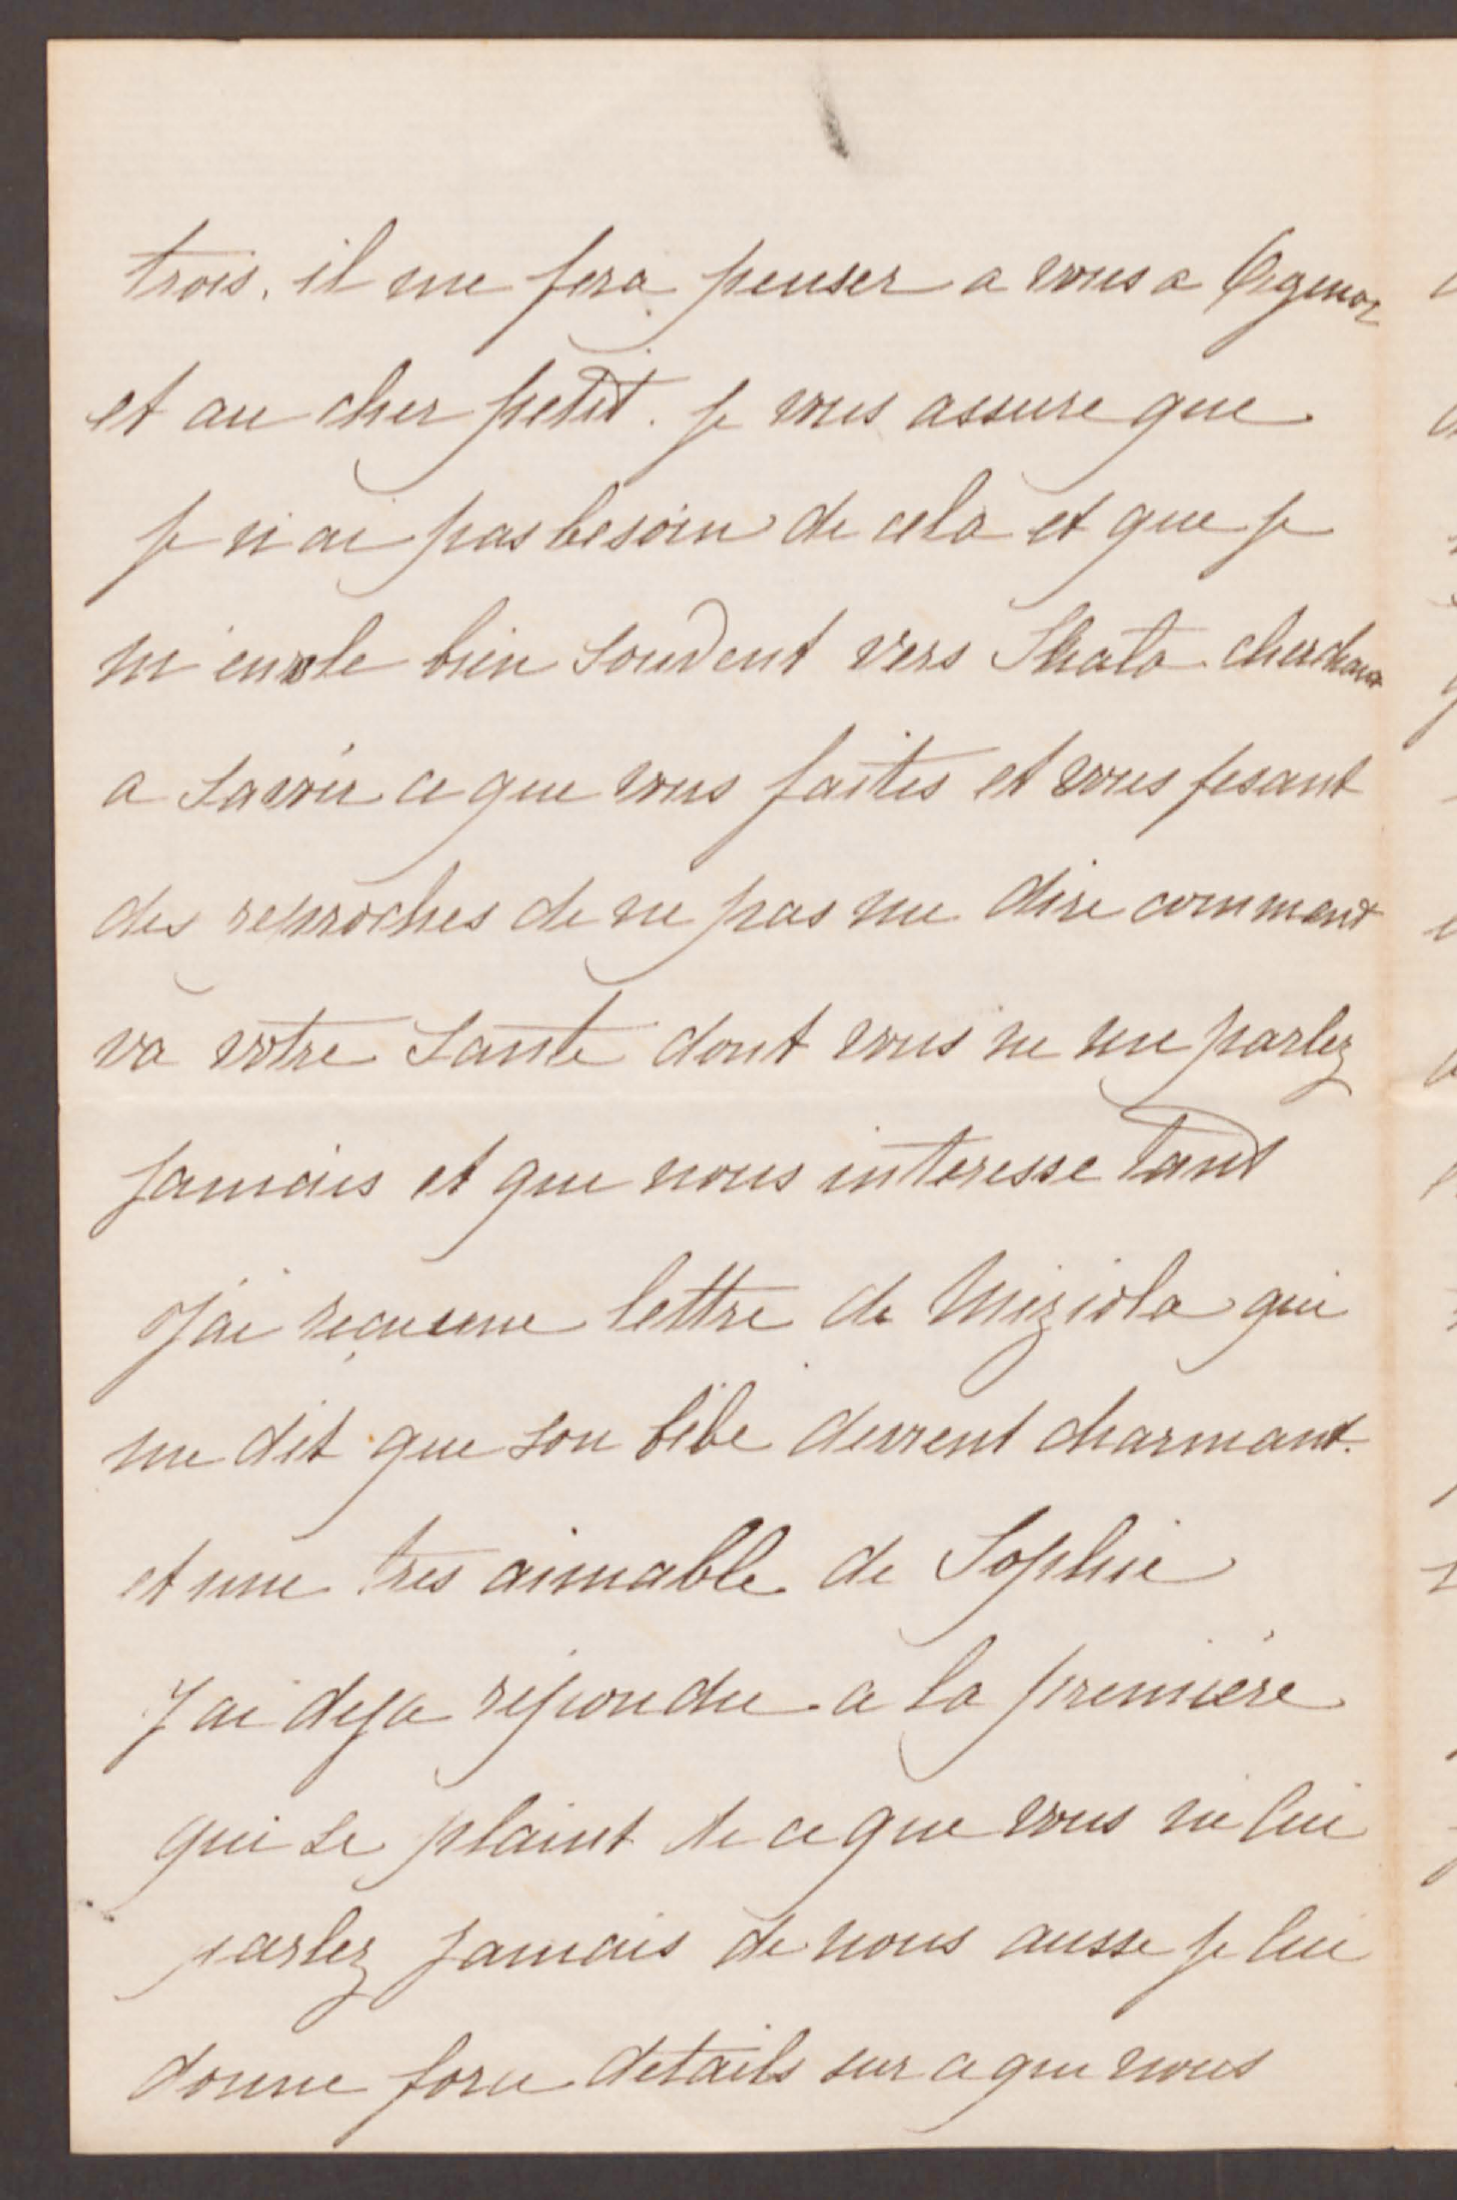 trois. il me fera penser a vous a Agenor
et au cher petit. je vous assure que
je n'ai pas besoin de cela et que je
m'envole bien souvent vers Skala cherchant
a savoir ce que vous faites et vous fesant
des reproches de ne pas me dire comment
va votre santé dont vous ne me parlez
jamais et que nous interesse tant
J'ai reçu une lettre de Miziola qui
me dit que son bébé devient charmant.
et une tres aimable de Sophie
J'ai deja répondu a la première
qui se plaint de ce que vous ne lui
parlez jamais de nous aussi je lui
donne details sur ce que nous